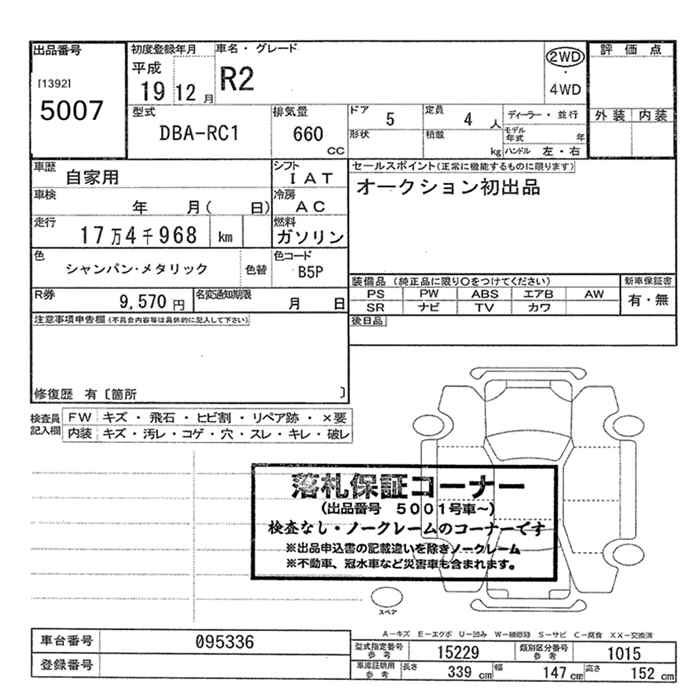 出品番号
[1392]
5007
初度登録年月
平成
19 12 月
車名・グレード
R2
2WD
・
4WD
評価点
外装 内装
型式
DBA-RC1
排気量
660
CC
ドア 5
定員 4 人
ディーラー・並行
形状
積載 kg
モデル年式 年
ハンドル 左・右
車歴
自家用
シフト
IAT
セールスポイント(正常に機能するものに限ります)
オークション初出品
車検
年 月( 日)
冷房
AC
走行
17万4千968 km
燃料
ガソリン
色
シャンパン・メタリック
色替
色コード
B5P
装備品 (純正品に限り○をつけてください)
新車保証書
PS PW ABS エアB AW
有・無
SR ナビ TV カワ
R券
9,570 円
名変通知期限
月 日
後日品
注意事項申告欄(不具合内容等は具体的に記入して下さい)
修復歴 有〔箇所 〕
検査員
記入欄
FW キズ・飛石・ヒビ割・リペア跡・×要
内装 キズ・汚レ・コゲ・穴・スレ・キレ・破レ
落札保証コーナー
(出品番号 5001号車~)
検査なし・ノークレームのコーナーです
※出品申込書の記載違いを除きノークレーム
※不動車、冠水車など災害車も含まれます。
スペア
A-キズ E-エクボ U-凹み W-補修跡 S-サビ C-腐食 XX-交換済
車台番号
095336
登録番号
型式指定番号
参考
15229
類別区分番号
参考
1015
車庫証明用
参考
長さ 339 cm
幅 147 cm
高さ 152 cm